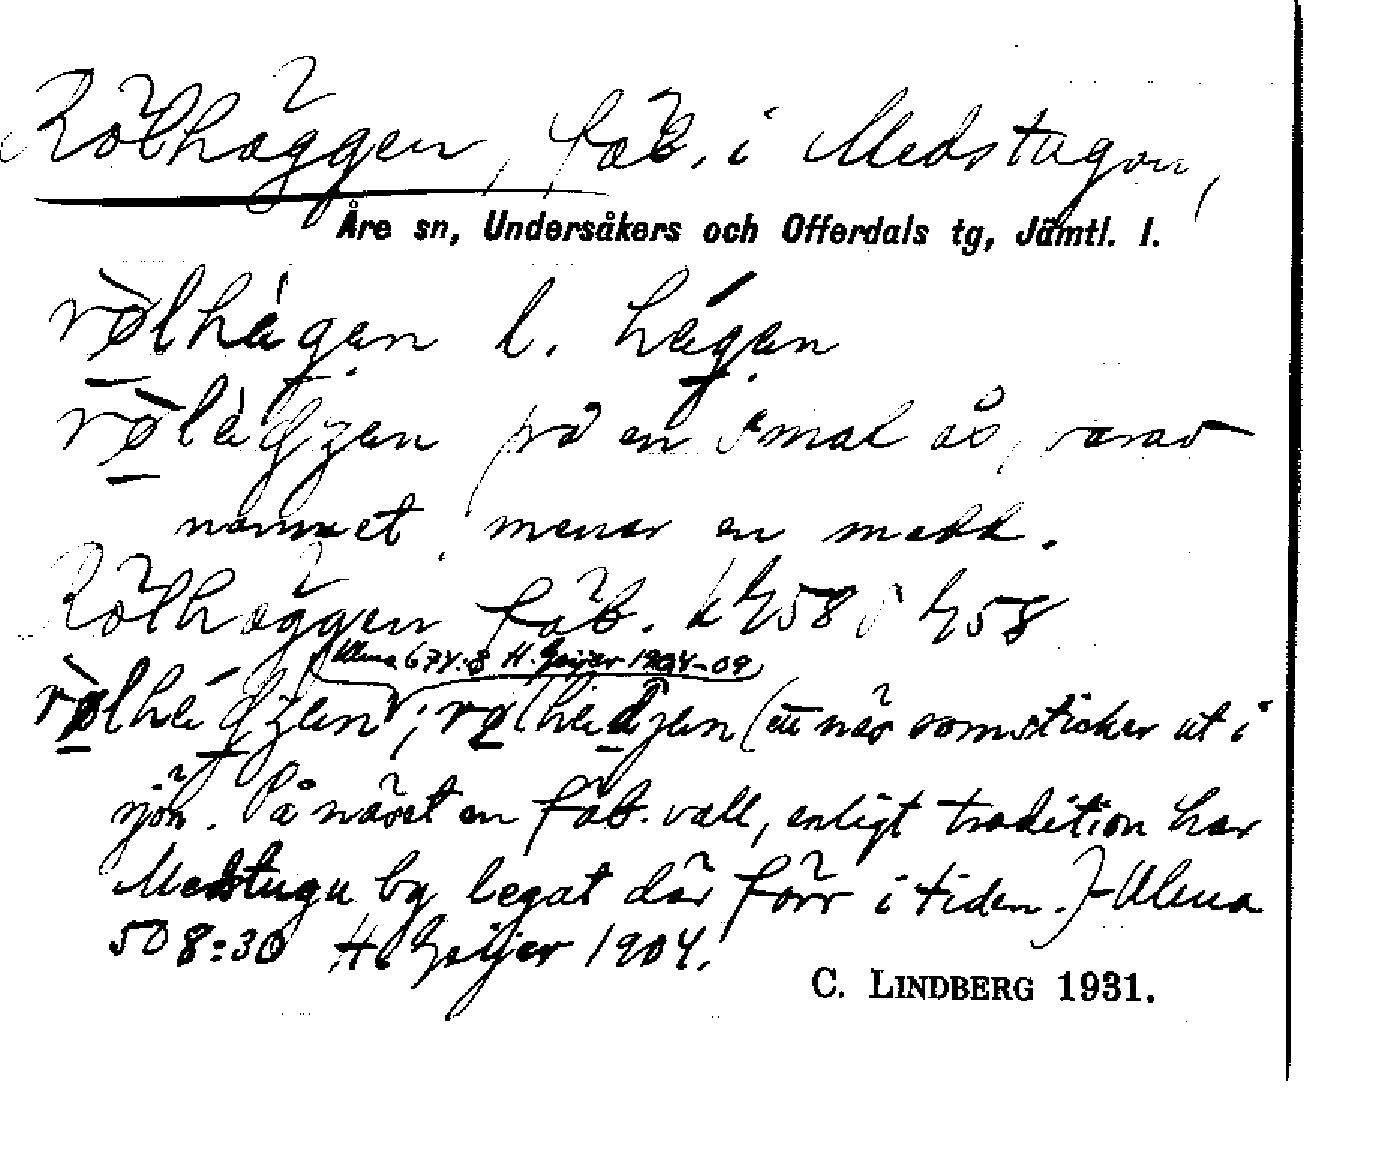 Rölhäggen, fäb. i Medstugan,
Åre sn, Undersåkers och Offerdals tg, Jämtl. l.
l.
på en smal ås, varav
namnet, menar en medd.
Rölhäggen fäb.
Ulma 677:8 H. Geijer 1904-09
(ett näs som sticker ut i
sjön. På näset en fäb.vall, enligt tradition har
Medstugu by legat där förr i tiden.) Ulma
508:30 H. Geijer 1904.
C. LINDBERG 1931.